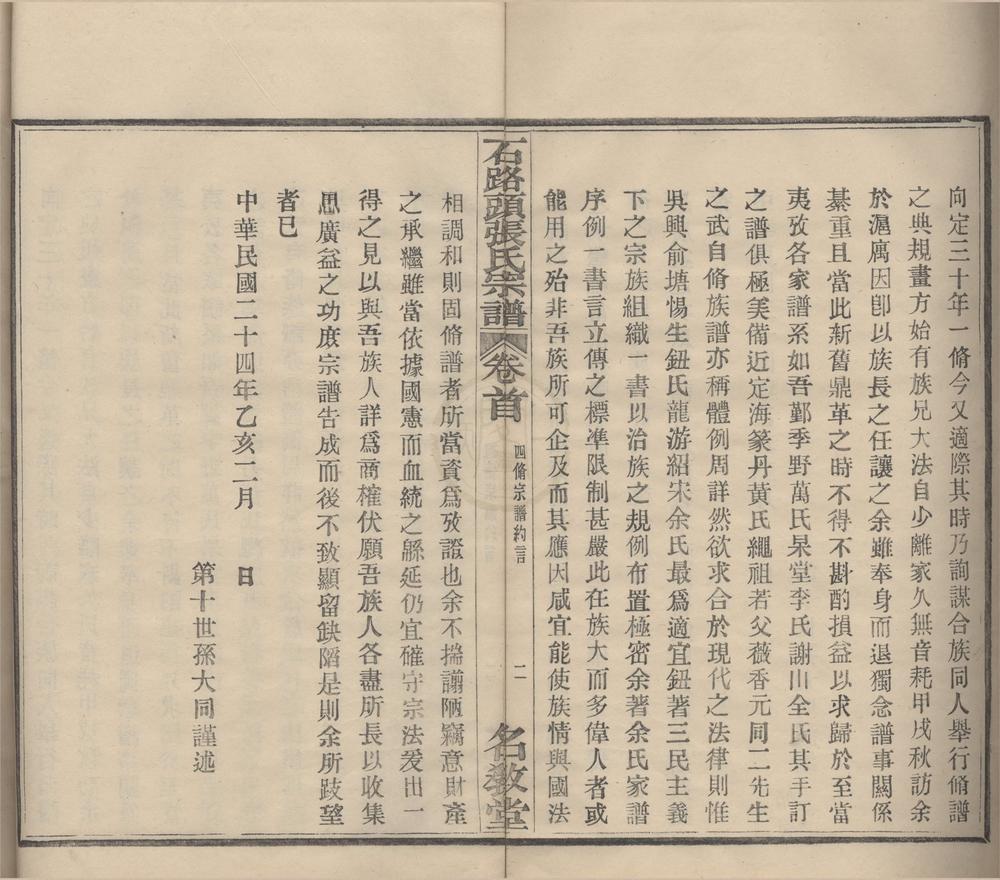 向定三十年一脩今又適際其時乃詢謀合族同人舉行脩譜
之典規畫方始有族兄大法自少離家久無音耗甲戌秋訪余
於滬寓因卽以族長之任讓之余雖奉身而退獨念譜事關係
綦重且當此新舊鼎革之時不得不斟酌損益以求歸於至當
夷攷各家譜系如吾鄞季野萬氏杲堂李氏謝山全氏其手訂
之譜俱極美備近定海篆丹黃氏繩祖若父薇香元同二先生
之武自脩族譜亦稱體例周詳然欲求合於現代之法律則惟
吳興俞塘惕生鈕氏龍游紹宋余氏最爲適宜鈕著三民主義
下之宗族組織一書以治族之規例布置極密余著余氏家譜
序例一書言立傳之標準限制甚嚴此在族大而多偉人者或
能用之殆非吾族所可企及而其應因咸宜能使族情與國法
石路頭張氏宗譜 卷首 四脩宗譜約言 二 名敎堂
相調和則固脩譜者所當資爲攷證也余不揣譾陋竊意財產
之承繼雖當依據國憲而血統之緜延仍宜確守宗法爰出一
得之見以與吾族人詳爲商榷伏願吾族人各盡所長以收集
思廣益之功庶宗譜告成而後不致顯留缺陷是則余所跂望
者已
中華民國二十四年乙亥二月 日
第十世孫大同謹述